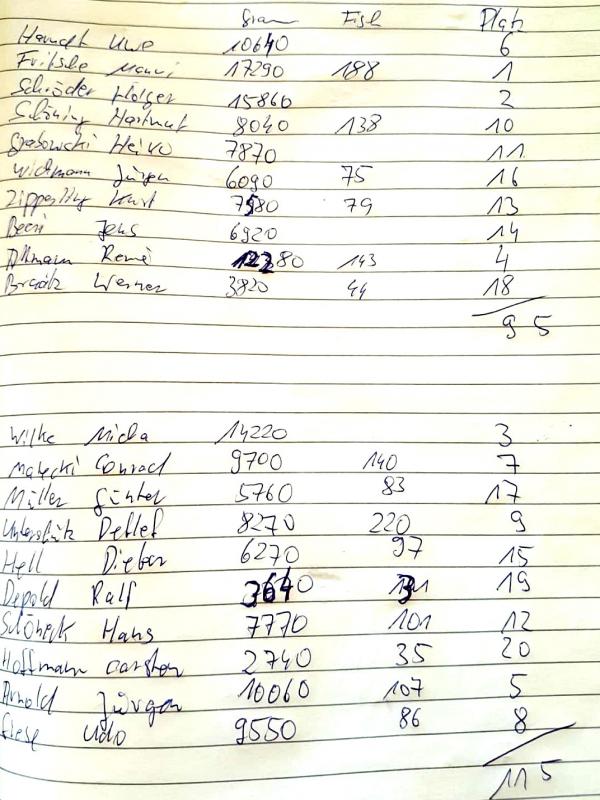 Gram Fisch Platz
Handt Uwe 10640 6
Fritsche Manni 17290 188 1
Schröder Holger 15860 2
Schöning Hartmut 8040 138 10
Grabowski Heiko 7870 11
Widmann Jürgen 6090 75 16
Zipperling Kurt 7580 79 13
Jens 6920 14
Allmann René 12280 143 4
Werner 3820 44 18
95
Wilke Micha 14220 3
Malecki Conrad 9700 140 7
Müller Günter 5760 83 17
Detlef 8270 220 9
Hell Dieter 6270 97 15
Depold Ralf 3640 19
Schöneck Hans 7770 101 12
Hoffmann Carsten 2740 35 20
Arnold Jürgen 10060 107 5
Udo 9550 86 8
115